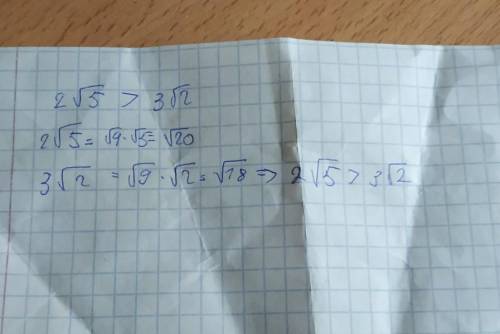 2√5 > 3√2
2√5 = √9·√5 = √20
3√2 = √9·√2 = √18 => 2√5 > 3√2